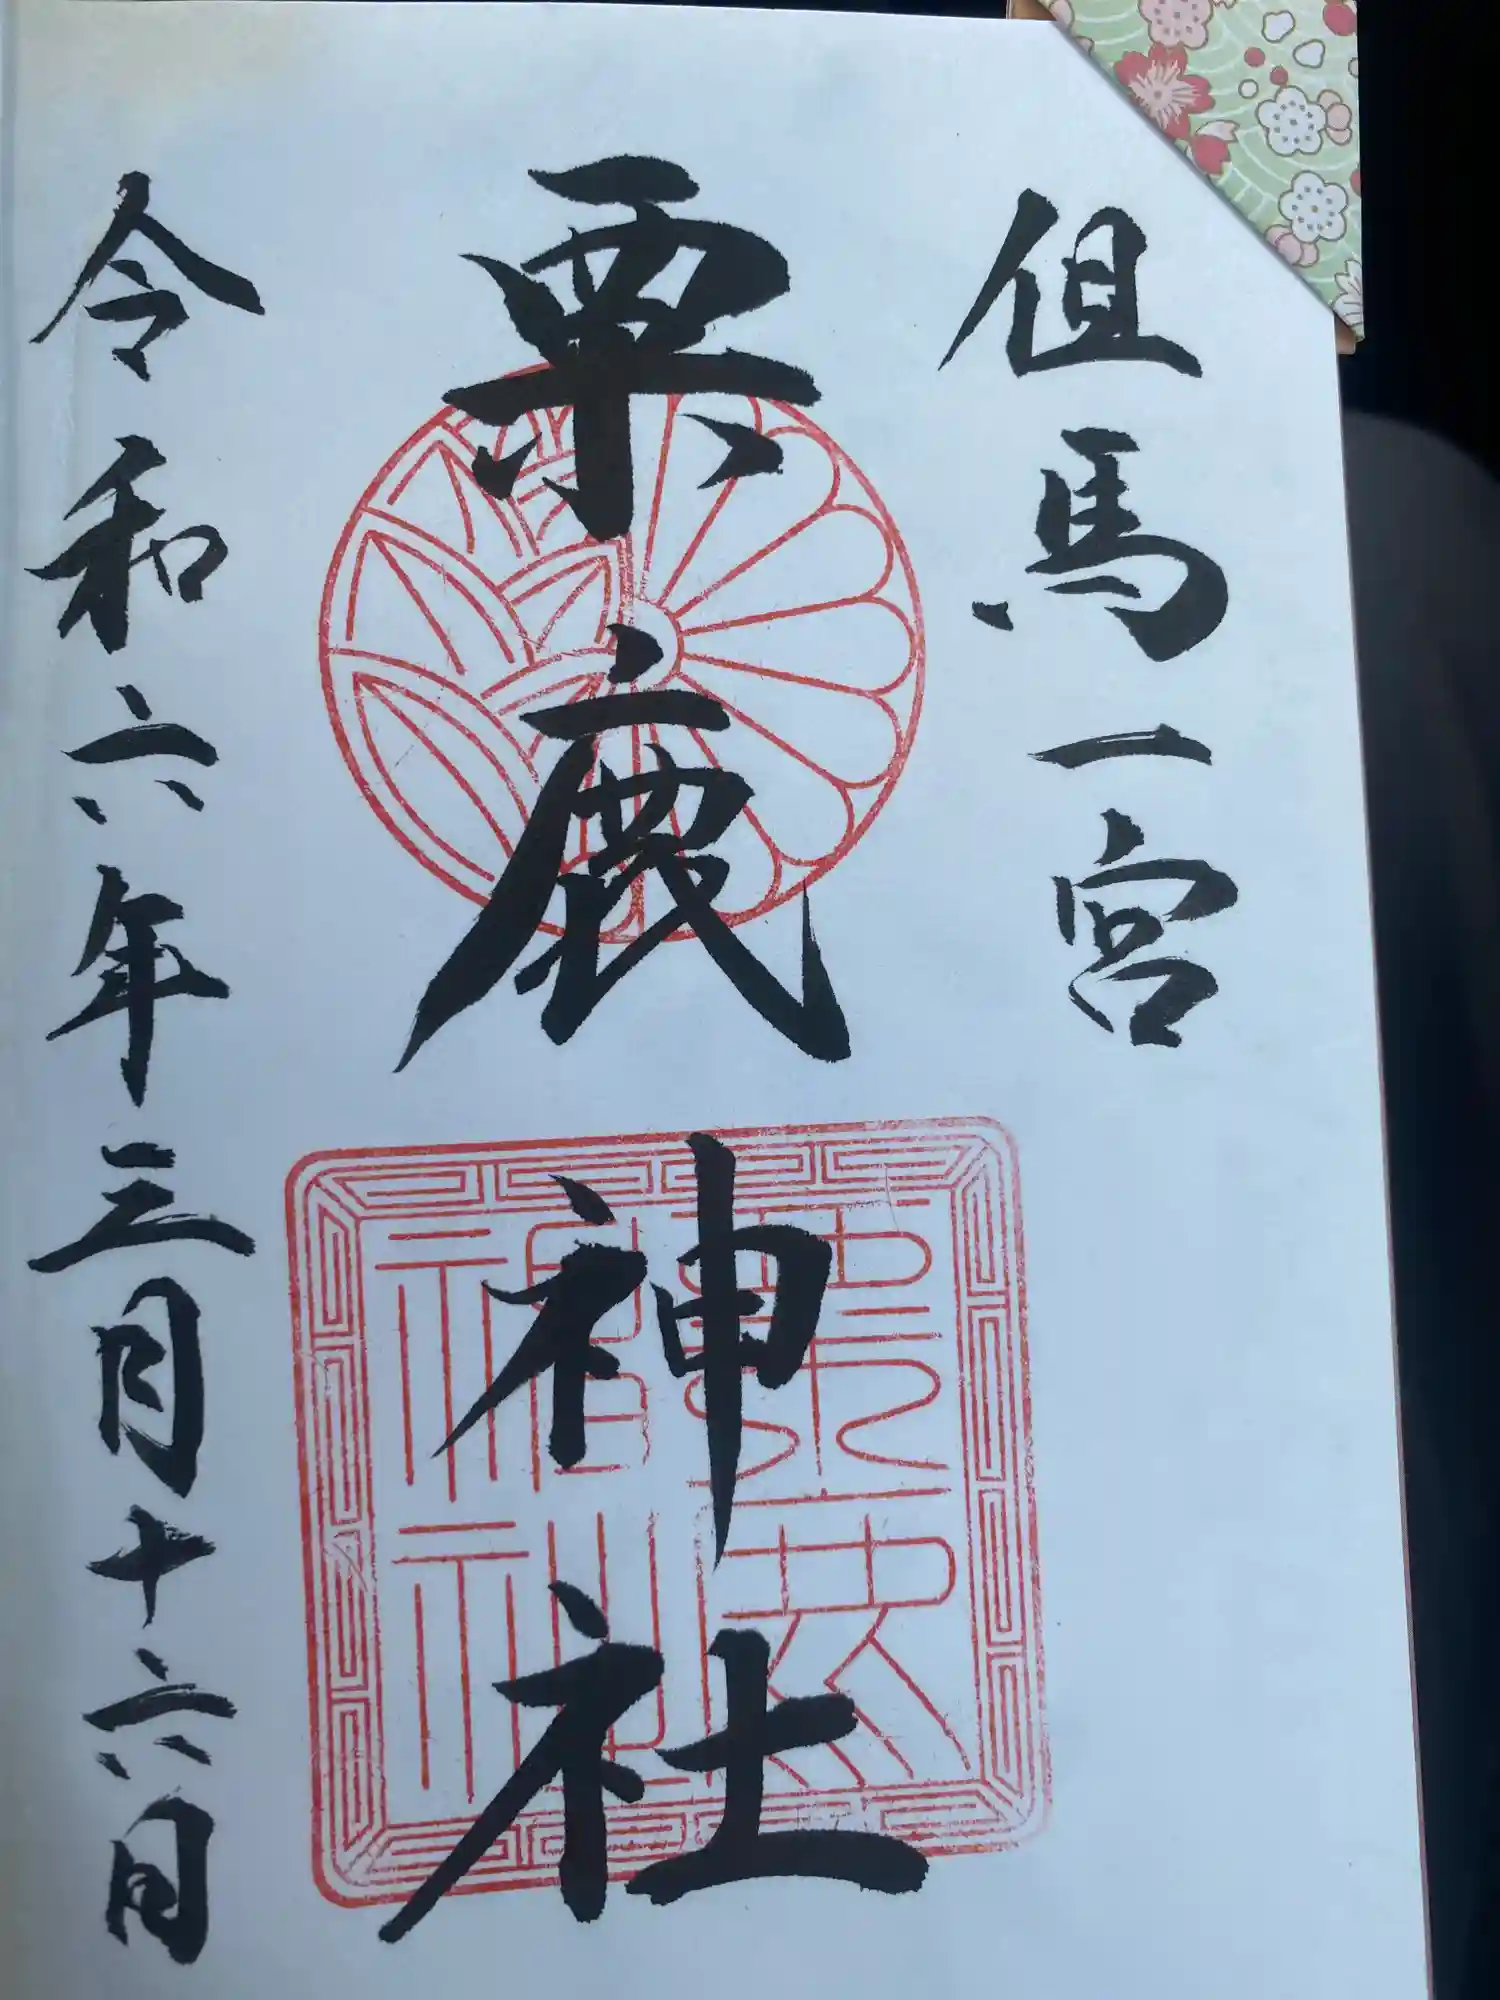 但馬一宮
粟鹿神社
令和六年三月十六日